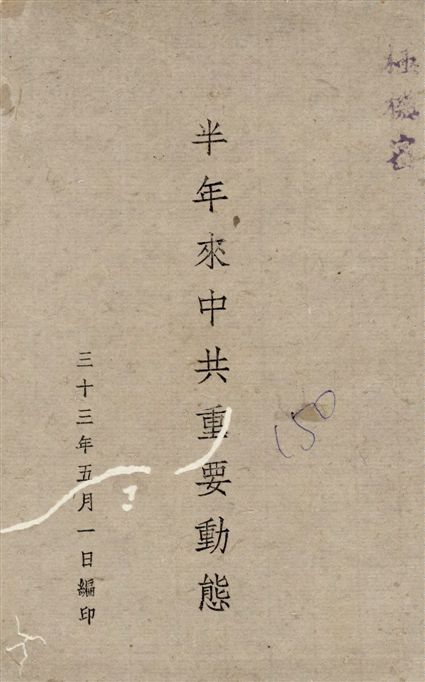 極機密
半年來中共重要動態
150
三十三年五月一日編印